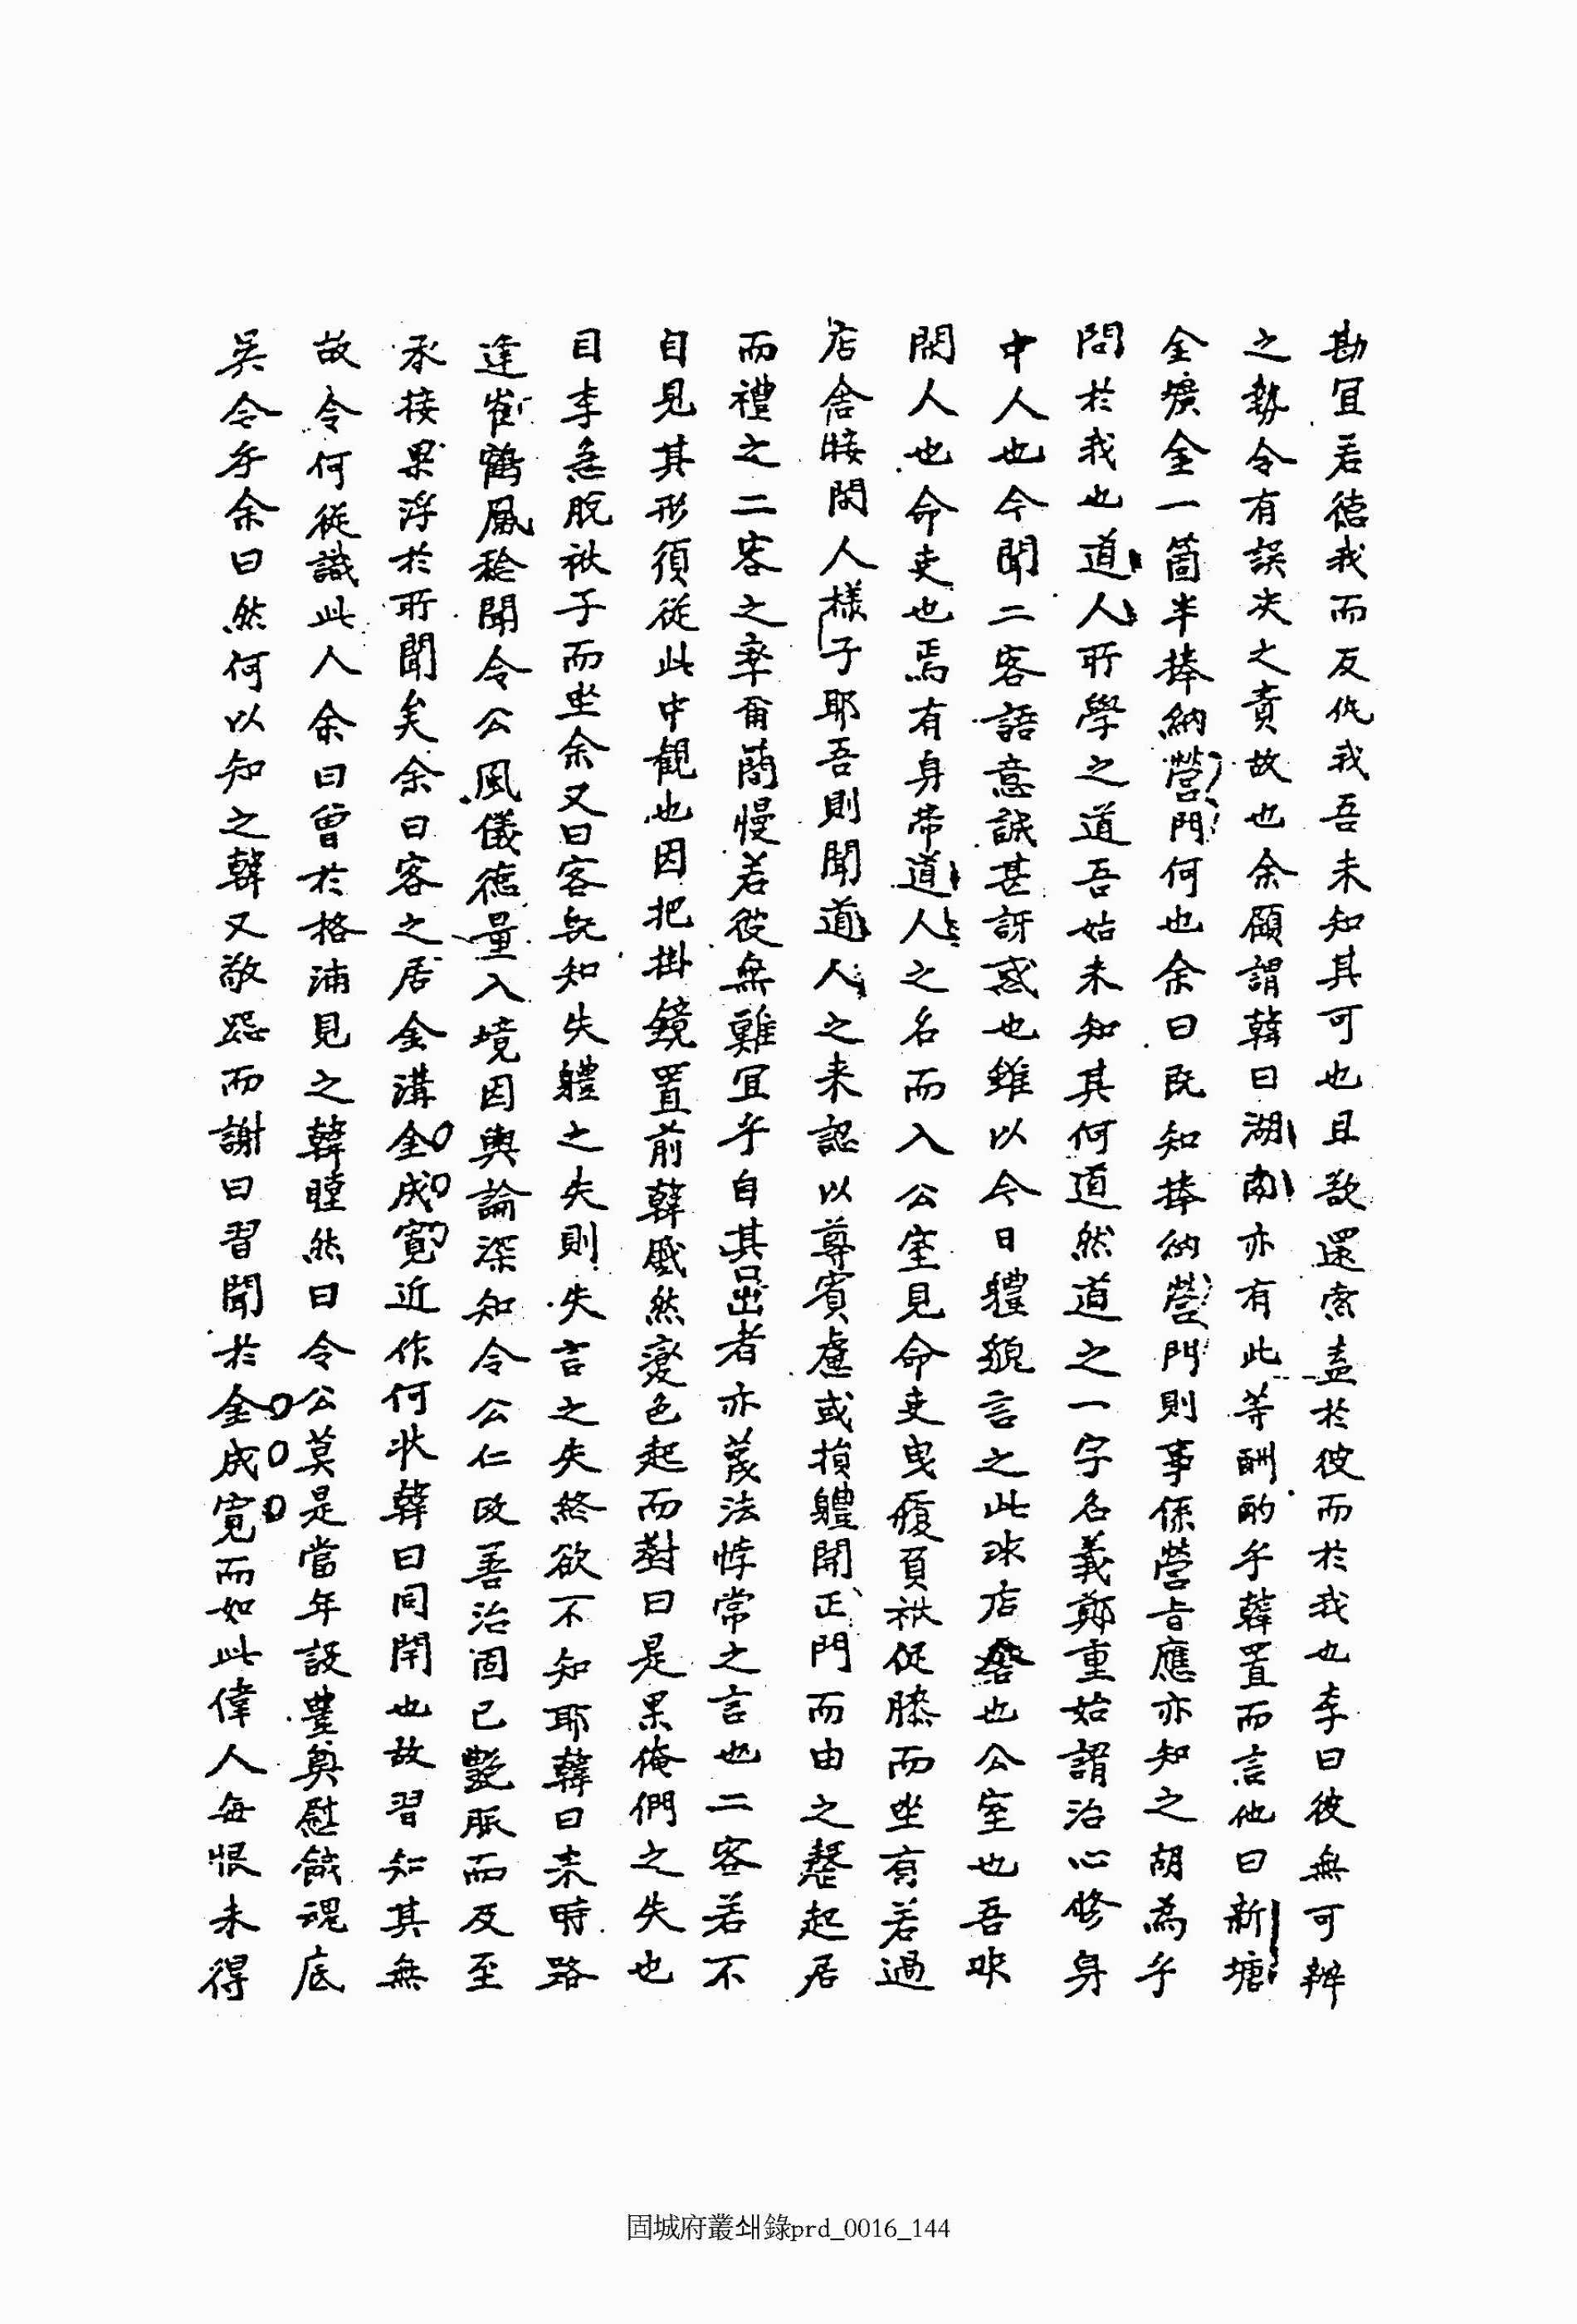 勘宜若德我而反仇我吾未知其可也且敢還索盡於彼而於我也李曰彼無可辨
之勢令有誤决之責故也余顧謂韓曰湖南亦有此等酬酌乎韓置而言他曰新塘
金壙金一箇半捧納營門何也余曰旣知捧納營門則事係營旨應亦知之胡爲乎
問於我也道人所學之道吾姑未知其何道然道之一字名義鄭重始謂治心修身
中人也今聞二客語意誠甚訝惑也雖以今日體貌言之此非店舍也公室也吾非
閑人也命吏也焉有身帶道人之名而入公室見命吏曳履負袱促膝而坐有若過
店舍接閑人樣子耶吾則聞道人之来認以尊賓慮或損體開正門而由之整起居
而禮之二客之率爾簡慢若彼無難宜乎自其呂出者亦蔑法悖常之言也二客若不
自見其形須從此中觀也因把掛鏡置前韓戚然變色起而對曰是果俺們之失也
目李急脫袱子而坐余又曰客旣知失體之失則失言之失終欲不知耶韓曰来時路
逢崔鶴鳳稔聞令公風儀德量入境因輿論深知令公仁政善治固已艶服而及至
承接果浮於所聞矣余曰客之居金溝金成寬近作何狀韓曰同閈也故習知其無
故令何從識此人余曰曾於格浦見之韓瞠然曰令公莫是當年設豊奠慰餓魂底
吳令乎余曰然何以知之韓又敬跽而謝曰習聞於金成寬而如此偉人每恨未得
固城府叢쇄錄prd_0016_144